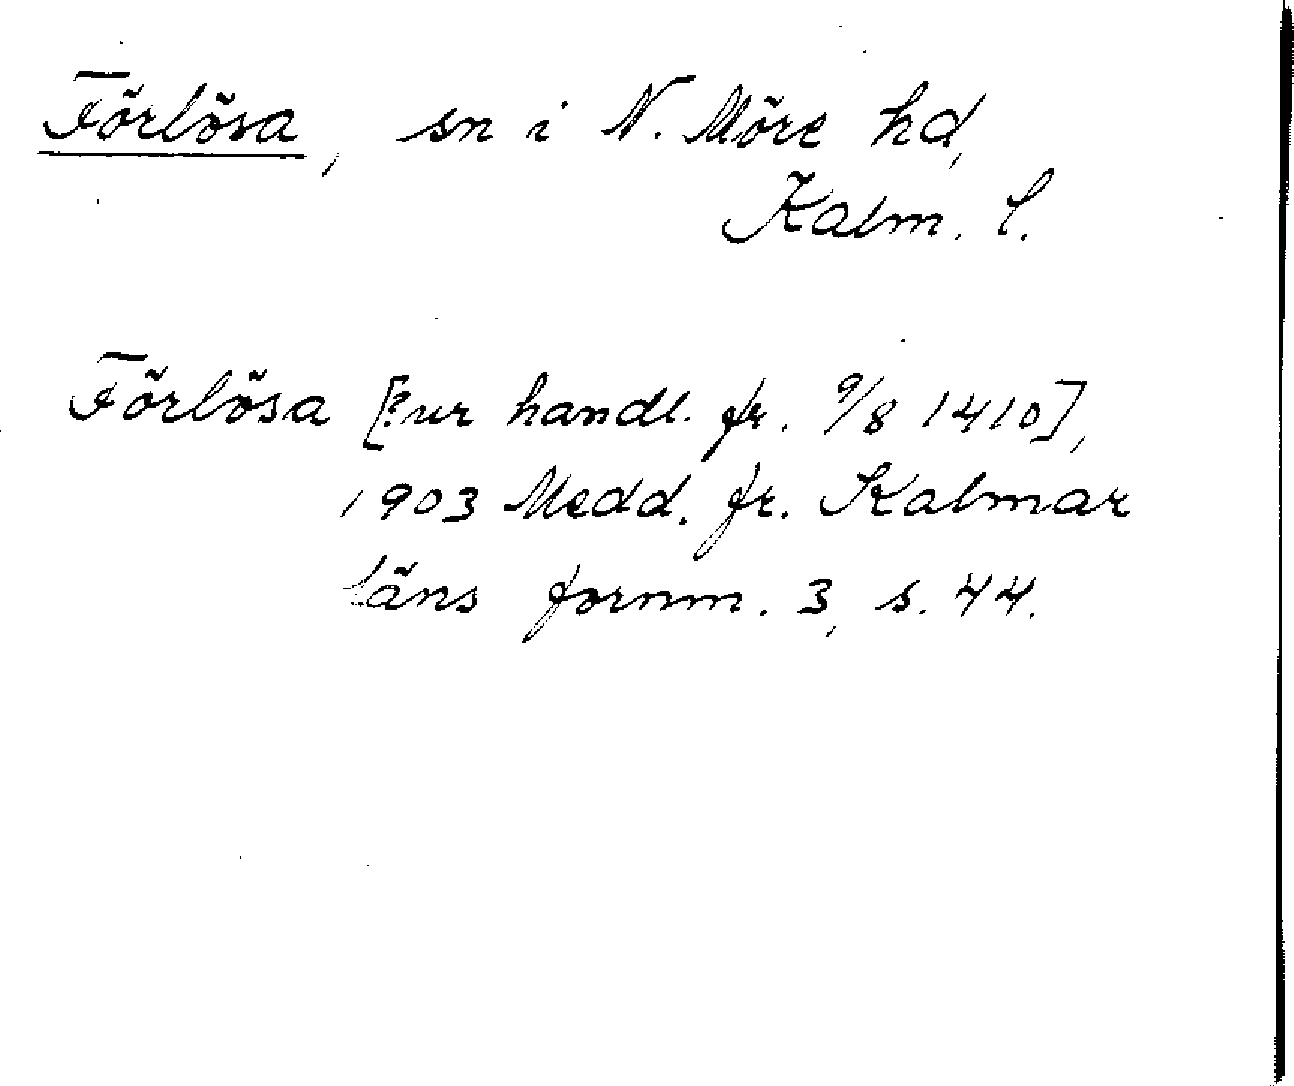 Förlösa, sn i N. Möre hd,
Kalm. l.
Förlösa [?ur handl. fr. 9/8 1410],
1903 Medd. fr. Kalmar
läns fornm. 3, s. 44.